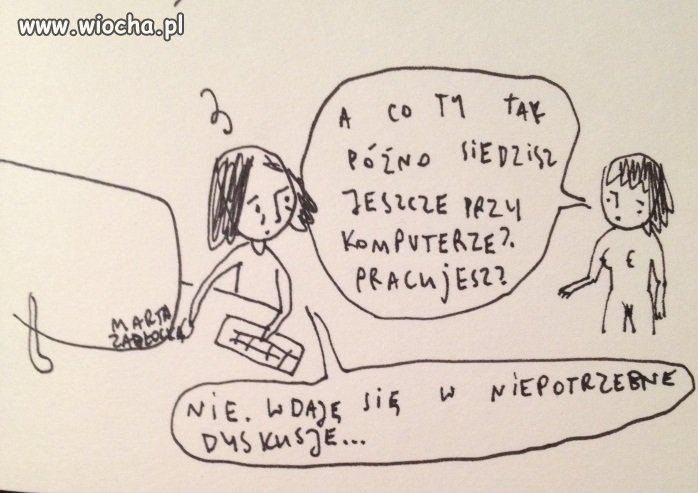 www.wiocha.pl
A CO TY TAK
PÓŹNO SIEDZISZ
JESZCZE PRZY
KOMPUTERZE?
PRACUJESZ?
MARTA
ZABŁOCKA
NIE. WDAJĘ SIĘ W NIEPOTRZEBNE
DYSKUSJE...